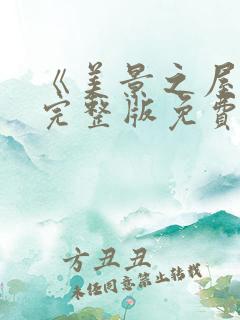 《美景之屋
完整版免费
方丑丑
未经同意禁止转载